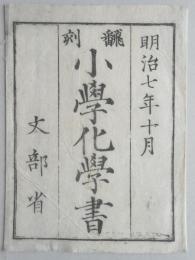 明治七年十月
翻刻
小學化學書
文部省